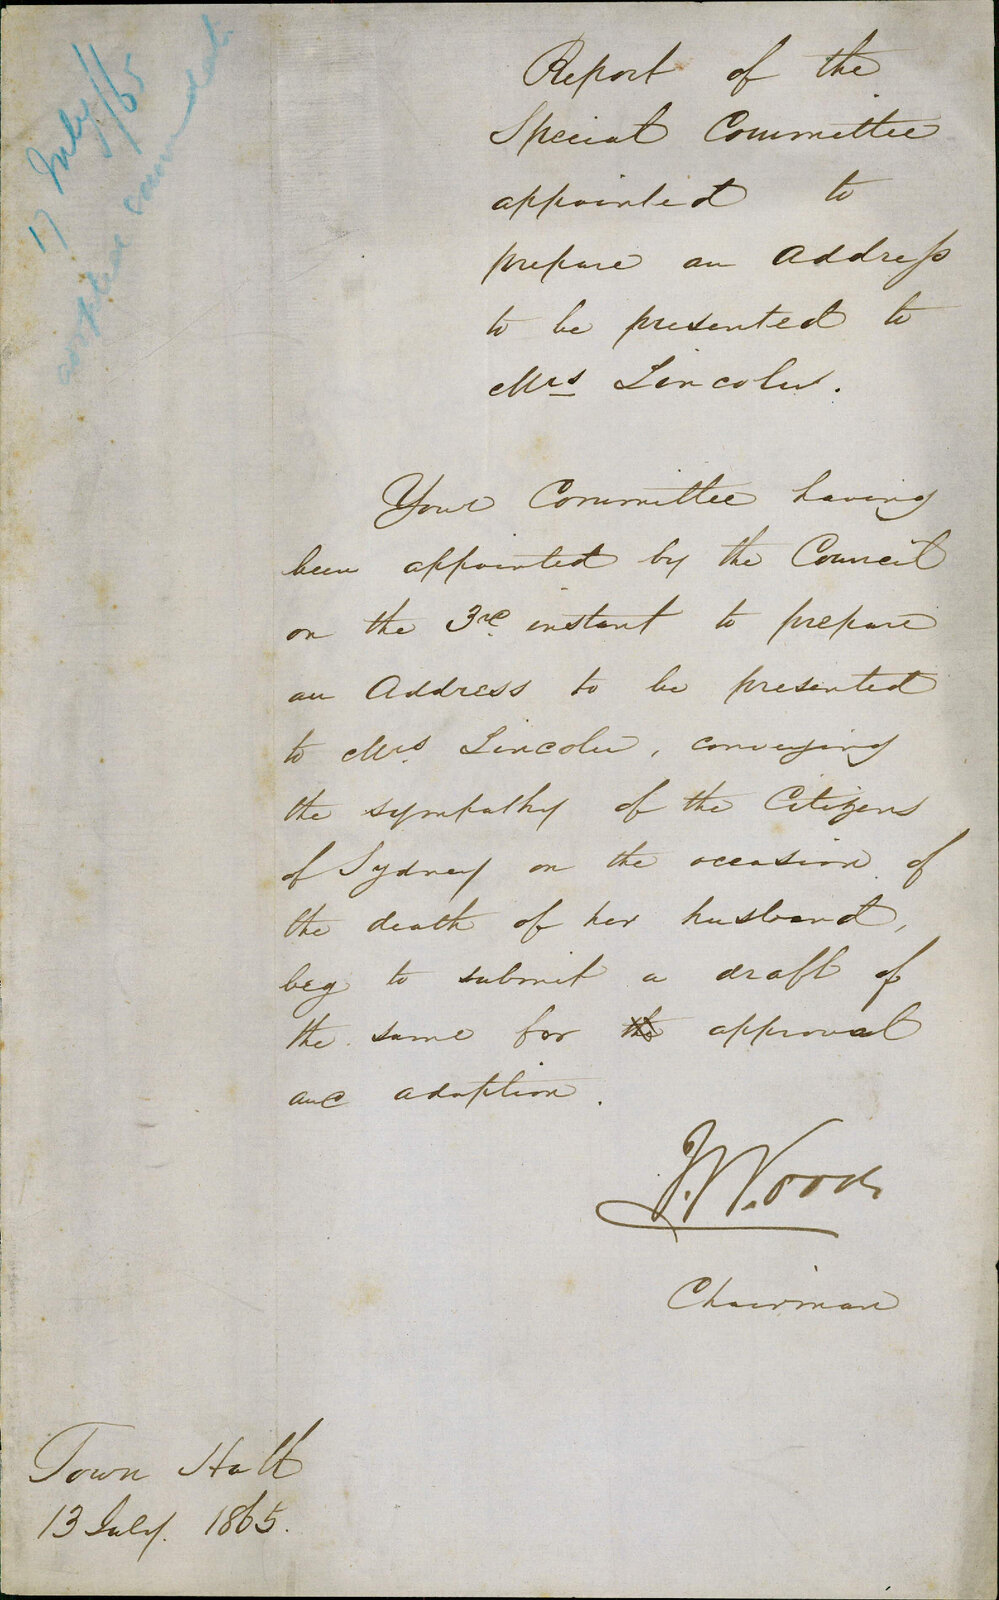 17 July/65
Report of the
Special Committee
appointed to
prepare an Address
to be presented to
Mrs Lincoln.
Your Committee having
been appointed by the Council
on the 3rd instant to prepare
an Address to be presented
to Mrs. Lincoln, conveying
the sympathy of the Citizens
of Sydney on the occasion of
the death of her husband,
beg to submit a draft of
the same for the approval
and adoption.
J. Woods
Chairman
Town Hall
13 July. 1865.